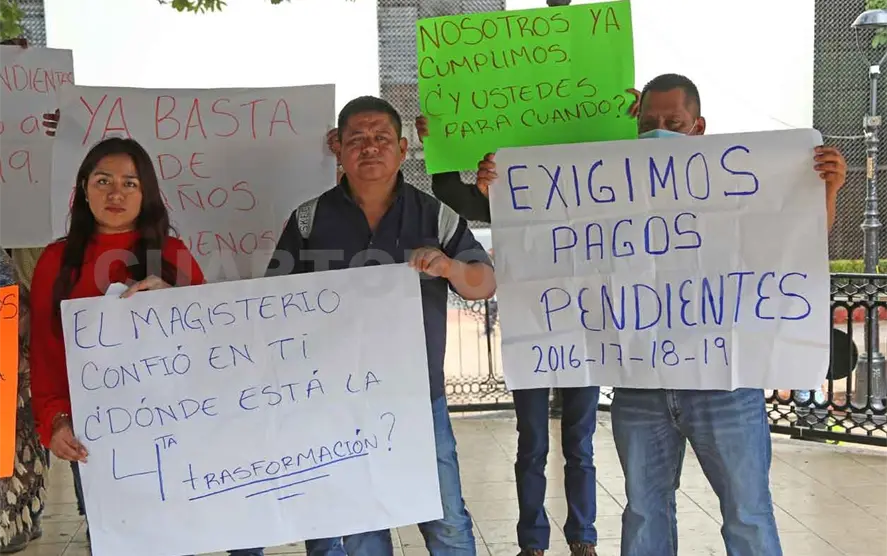 NOSOTROS YA
CUMPLIMOS.
¿Y USTEDES
PARA CUANDO?
YA BASTA
DE
AÑOS
EXIGIMOS
PAGOS
PENDIENTES
2016-17-18-19
EL MAGISTERIO
CONFIÓ EN TI
¿DÓNDE ESTÁ LA
4TA trasformación?
CUARTO